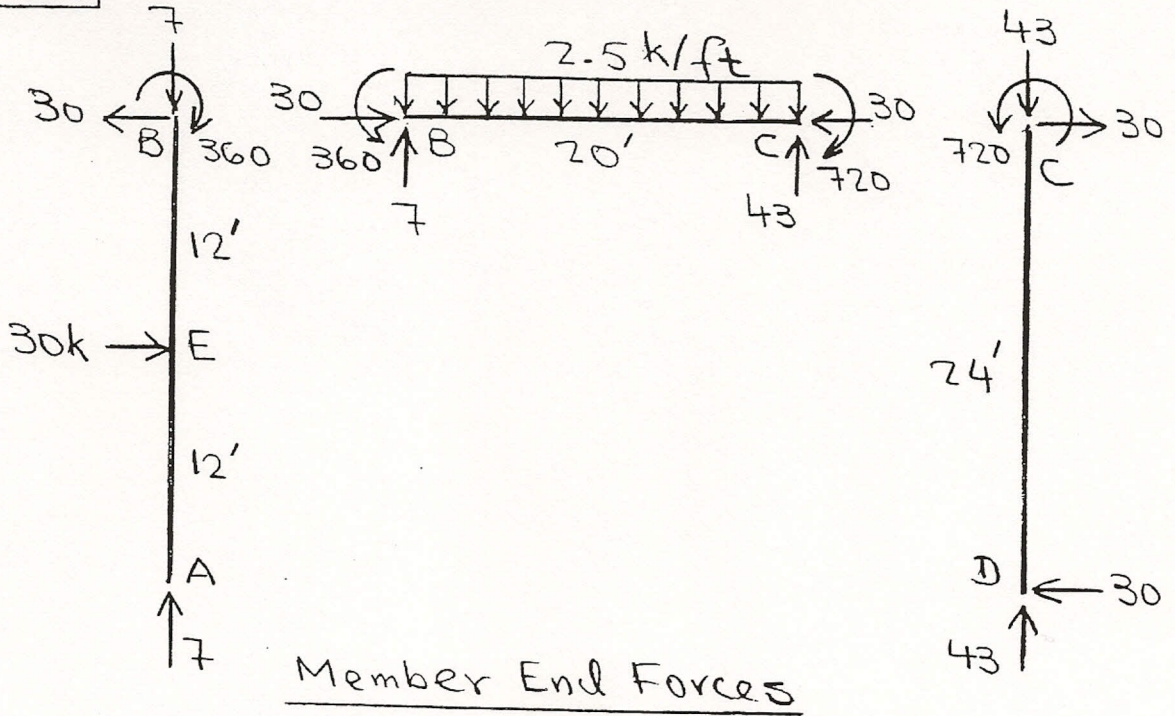 7
30
B 360
12'
30k E
12'
A
7
2.5 k/ft
30 30
360 B 20' C 720
7 43
43
30
720 C
24'
D 30
43
Member End Forces